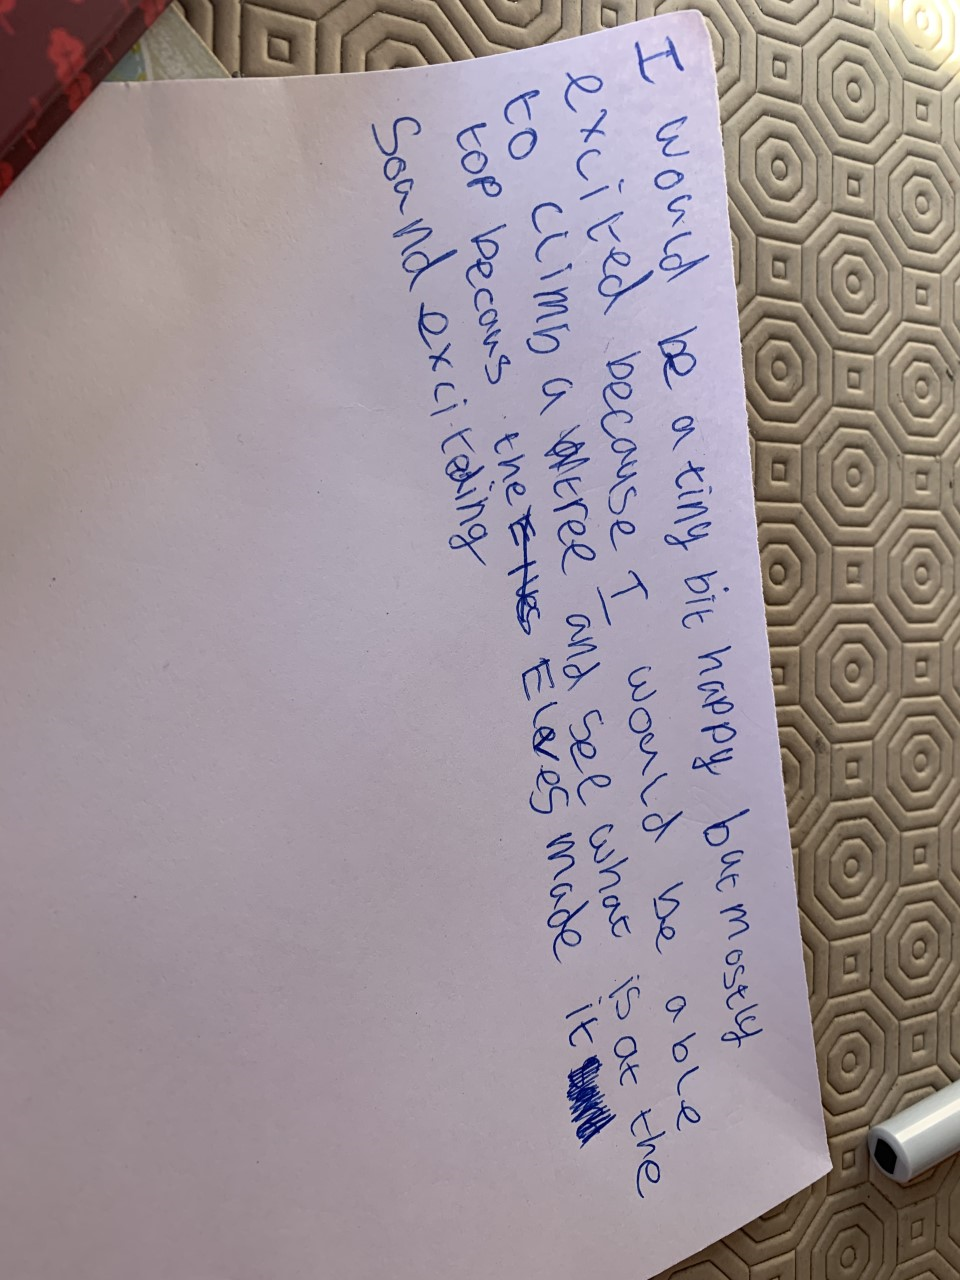 I would be a tiny bit happy but mostly
excited because I would be able
to climb a tree and see what is at the
top becaus the Elves made it
Sound exciteing